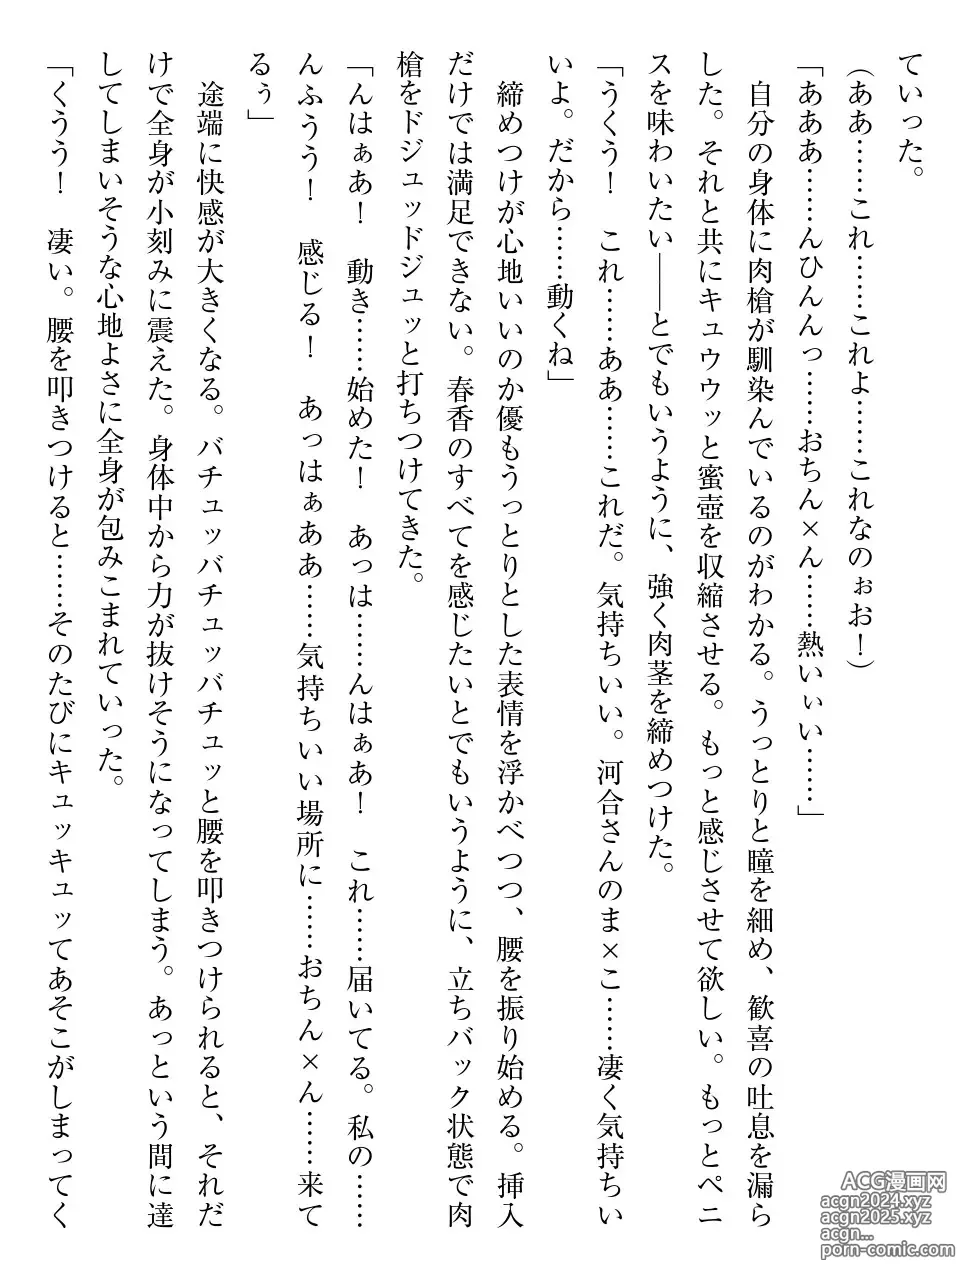 ていった。
（ああ……これ……これよ……これなのぉお！）
「あああ……んひんんっ……おちん×ん……熱いぃい……」
　自分の身体に肉槍が馴染んでいるのがわかる。うっとりと瞳を細め、歓喜の吐息を漏ら
した。それと共にキュウウッと蜜壺を収縮させる。もっと感じさせて欲しい。もっとペニ
スを味わいたい――とでもいうように、強く肉茎を締めつけた。
「うくう！　これ……ああ……これだ。気持ちいい。河合さんのま×こ……凄く気持ちい
いよ。だから……動くね」
　締めつけが心地いいのか優もうっとりとした表情を浮かべつつ、腰を振り始める。挿入
だけでは満足できない。春香のすべてを感じたいとでもいうように、立ちバック状態で肉
槍をドジュッドジュッと打ちつけてきた。
「んはぁあ！　動き……始めた！　あっは……んはぁあ！　これ……届いてる。私の……
んふうう！　感じる！　あっはぁああ……気持ちいい場所に……おちん×ん……来て
るぅ」
　途端に快感が大きくなる。バチュッバチュッバチュッと腰を叩きつけられると、それだ
けで全身が小刻みに震えた。身体中から力が抜けそうになってしまう。あっという間に達
してしまいそうな心地よさに全身が包みこまれていった。
「くうう！　凄い。腰を叩きつけると……そのたびにキュッキュッてあそこがしまってく
ACG漫画网
acgn2024.xyz
acgn2025.xyz
acgn...
porn-comic.com